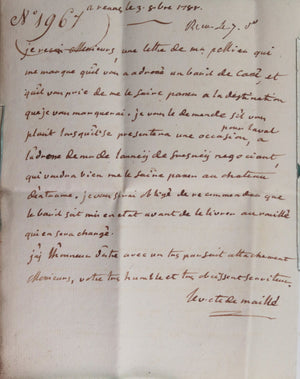 N° 1967
a rennes le 3. 8bre 1788.
Reçu le 7. d°
je reçois Messieurs, une lettre de mr pellieu qui
me marque qu'il vous a adressé un baril de Caffé, et
qu'il vous prie de me le faire passer a la destination
que je vous marquerai. je vous le demande s'il vous
plait lorsqu'il se presentera une occasion, pour laval
a l'adresse de mr de negociant,
qui voudra bien me le faire passer au chateau
d'entrame. je vous serai obligé de recommander que
le baril soit mis en etat avant de le livrer au
qui en sera chargé.
j'ai l'honneur d'etre avec un tres parfait attachement
Messieurs, votre tres humble et tres obeissant serviteur
le vcte de maillé